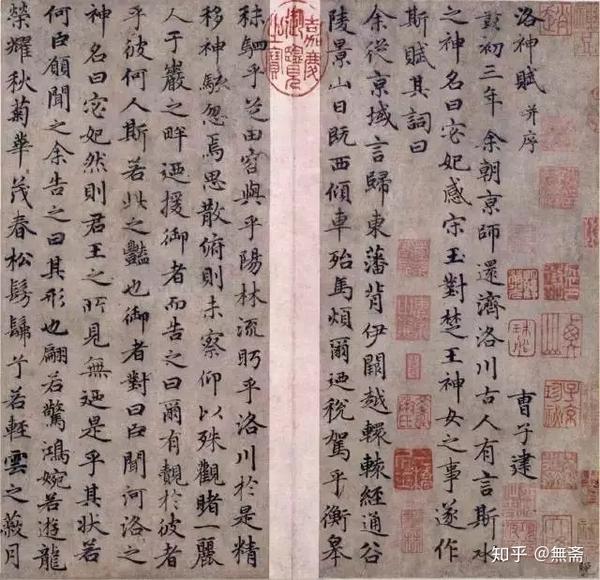 洛神賦 并序 曹子建
黃初三年余朝京師還濟洛川古人有言斯水
之神名曰宓妃感宋玉對楚王神女之事遂作
斯賦其詞曰
余從京域言歸東藩背伊闕越轘轅經通谷
陵景山日既西傾車殆馬煩爾迺稅駕乎衡皋
秣駟乎芝田容與乎陽林流眄乎洛川於是精
移神駭忽焉思散俯則未察仰以殊觀睹一麗
人于巖之畔迺援御者而告之曰爾有覿於彼者
乎彼何人斯若此之豔也御者對曰臣聞河洛之
神名曰宓妃然則君王之所見無迺是乎其狀若
何臣願聞之余告之曰其形也翩若驚鴻婉若遊龍
榮耀秋菊華茂春松髣髴兮若輕雲之蔽月
嘉慶御覽之寶
知乎 @無斋